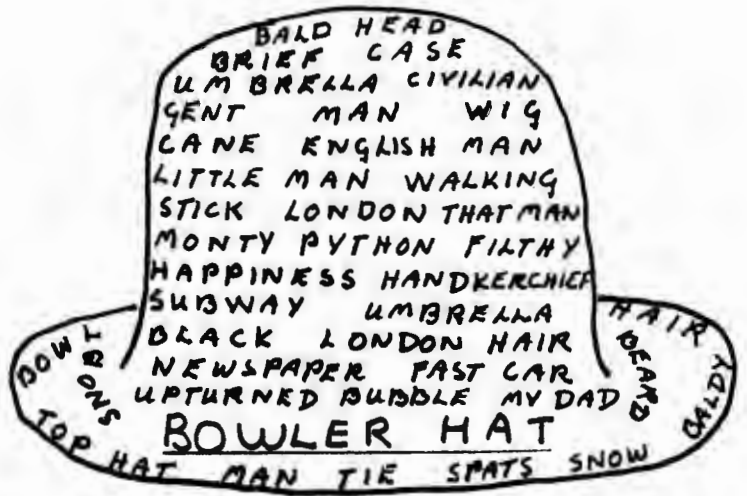 BALD HEAD
BRIEF CASE
UMBRELLA CIVILIAN
GENT MAN WIG
CANE ENGLISH MAN
LITTLE MAN WALKING
STICK LONDON THAT MAN
MONTY PYTHON FILTHY
HAPPINESS HANDKERCHIEF
SUBWAY UMBRELLA
BLACK LONDON HAIR
NEWSPAPER FAST CAR
UPTURNED BUBBLE MY DAD
BOWLER HAT
BOWL
SNOB
HAIR
BEARD
BALDY
TOP HAT MAN TIE SPATS SNOW